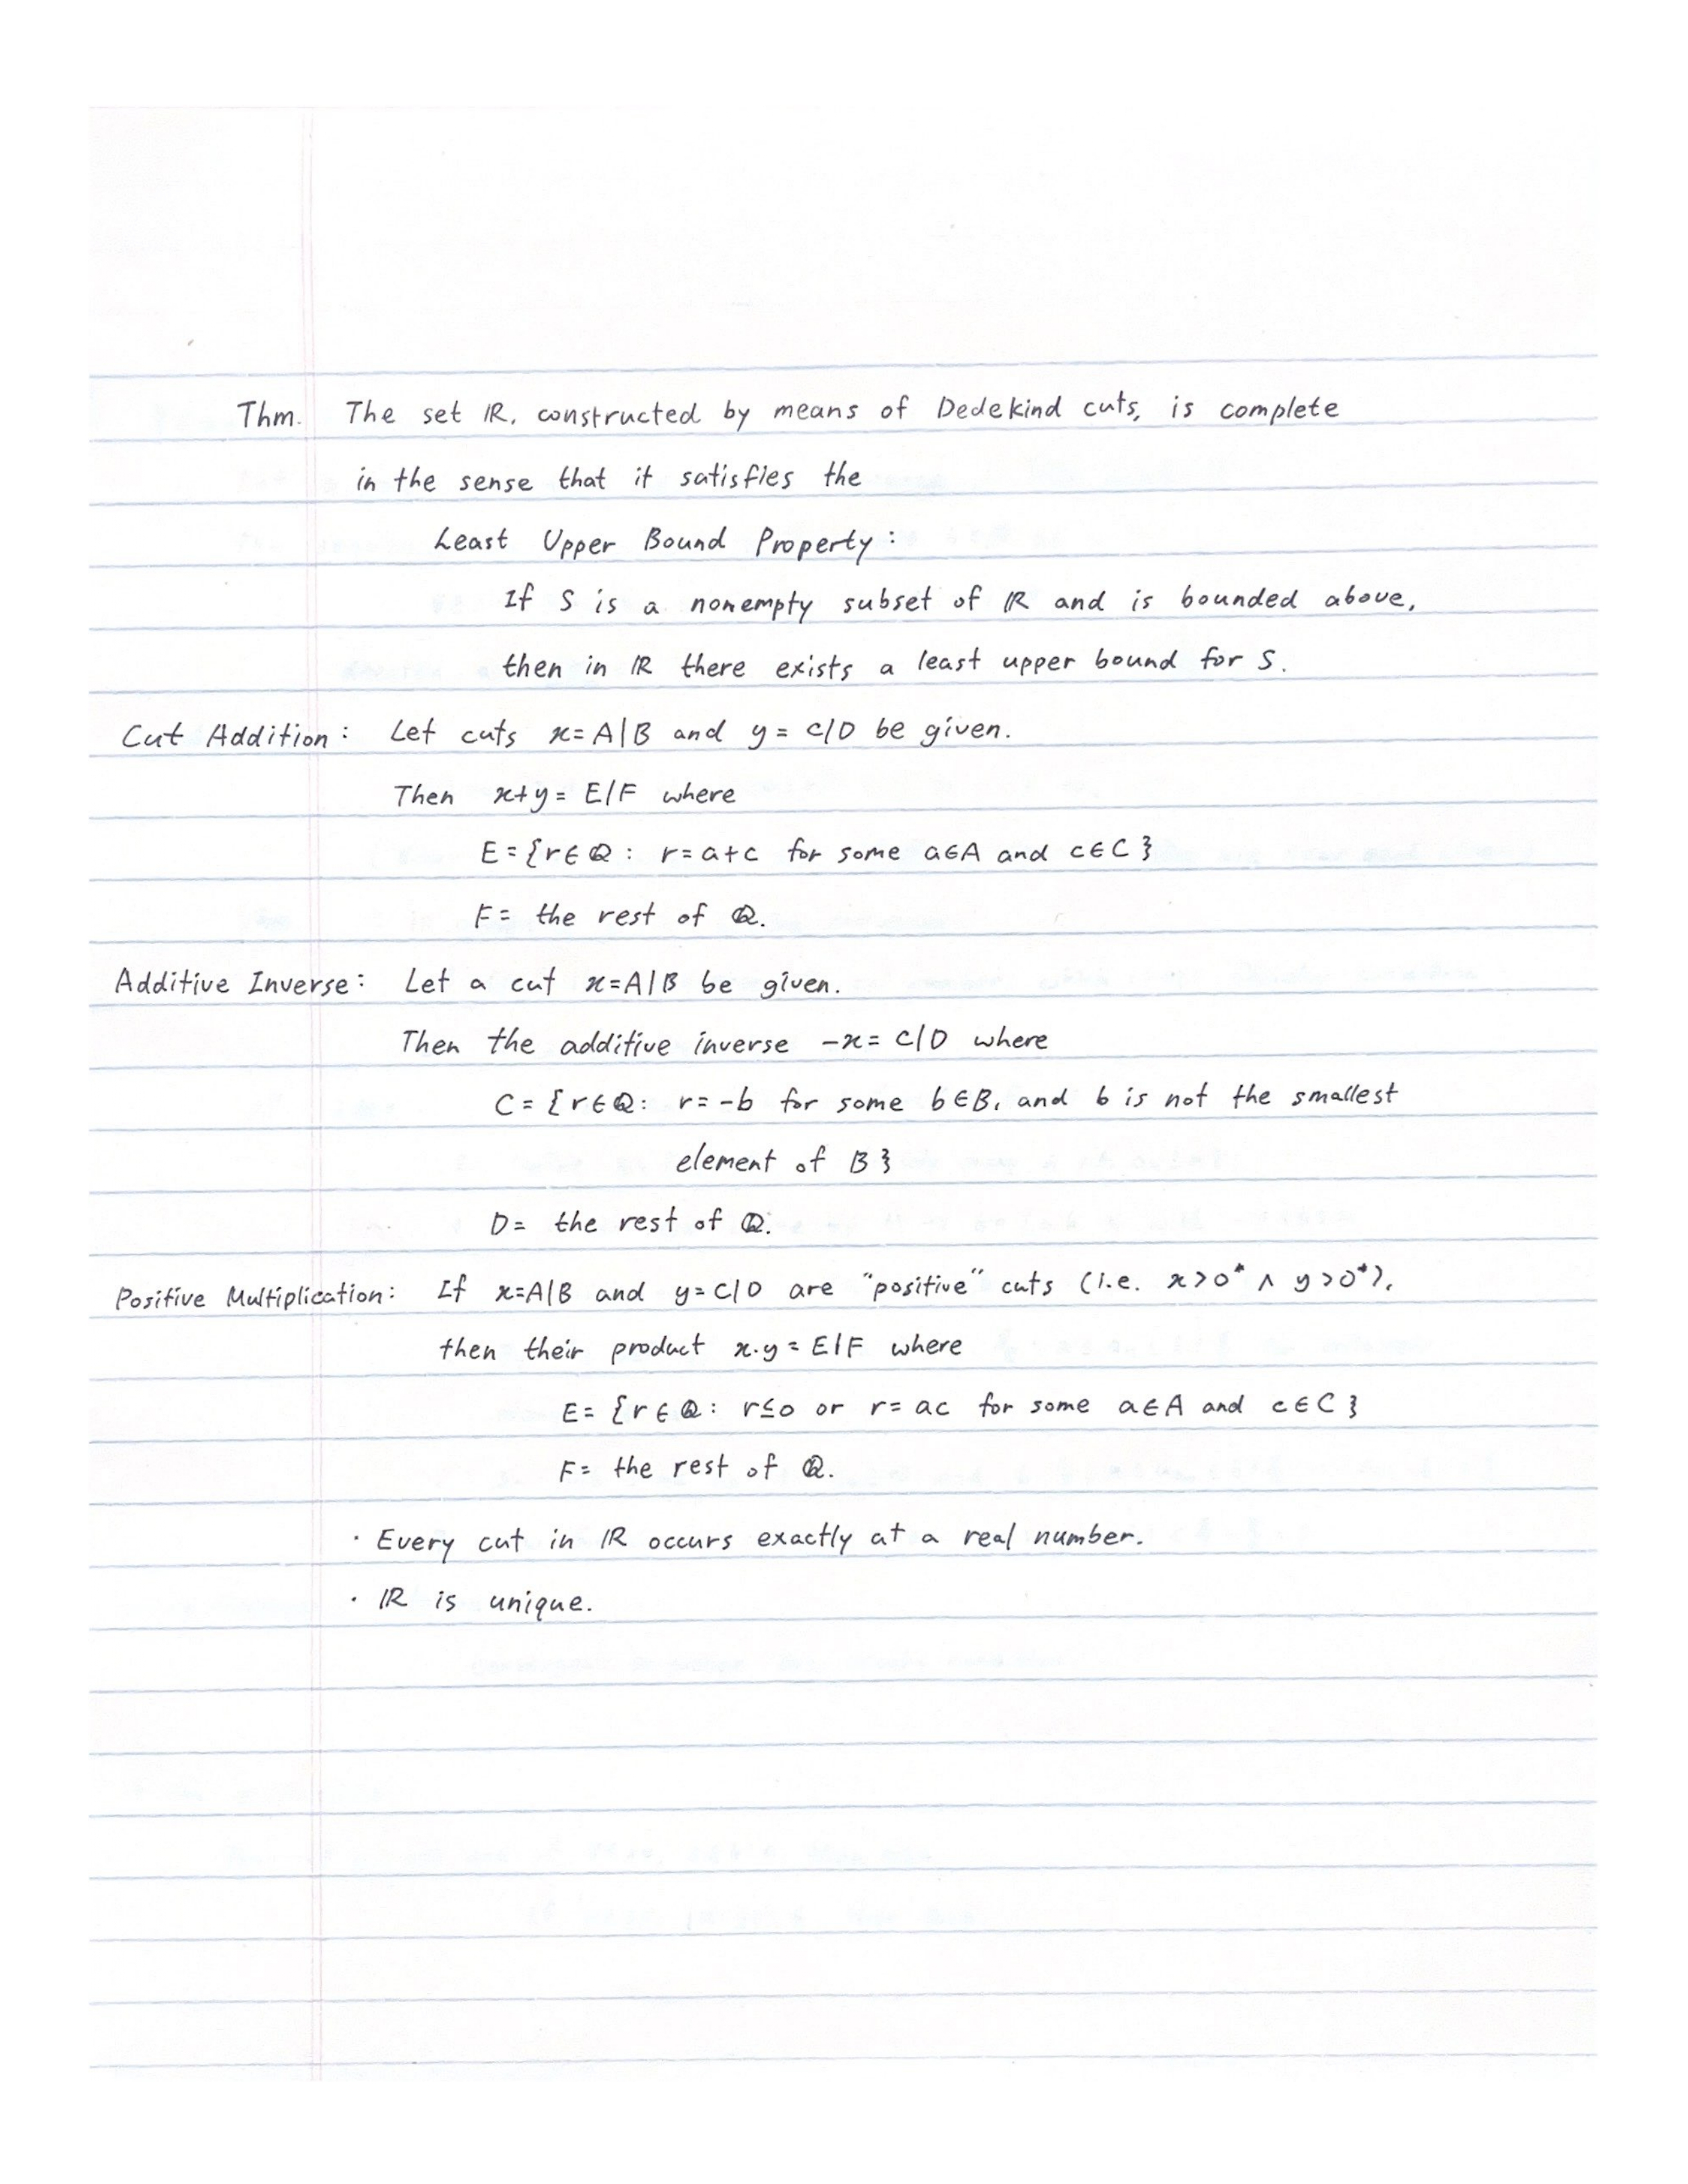 Thm. The set ℝ, constructed by means of Dedekind cuts, is complete
in the sense that it satisfies the
Least Upper Bound Property:
If S is a nonempty subset of ℝ and is bounded above,
then in ℝ there exists a least upper bound for S.
Cut Addition: Let cuts x=A|B and y=C|D be given.
Then x+y=E|F where
E={r∈ℚ: r=a+c for some a∈A and c∈C}
F= the rest of ℚ.
Additive Inverse: Let a cut x=A|B be given.
Then the additive inverse -x=C|D where
C={r∈ℚ: r=-b for some b∈B, and b is not the smallest
element of B}
D= the rest of ℚ.
Positive Multiplication: If x=A|B and y=C|D are "positive" cuts (i.e. x>0* ∧ y>0*),
then their product x·y=E|F where
E={r∈ℚ: r≤0 or r=ac for some a∈A and c∈C}
F= the rest of ℚ.
· Every cut in ℝ occurs exactly at a real number.
· ℝ is unique.